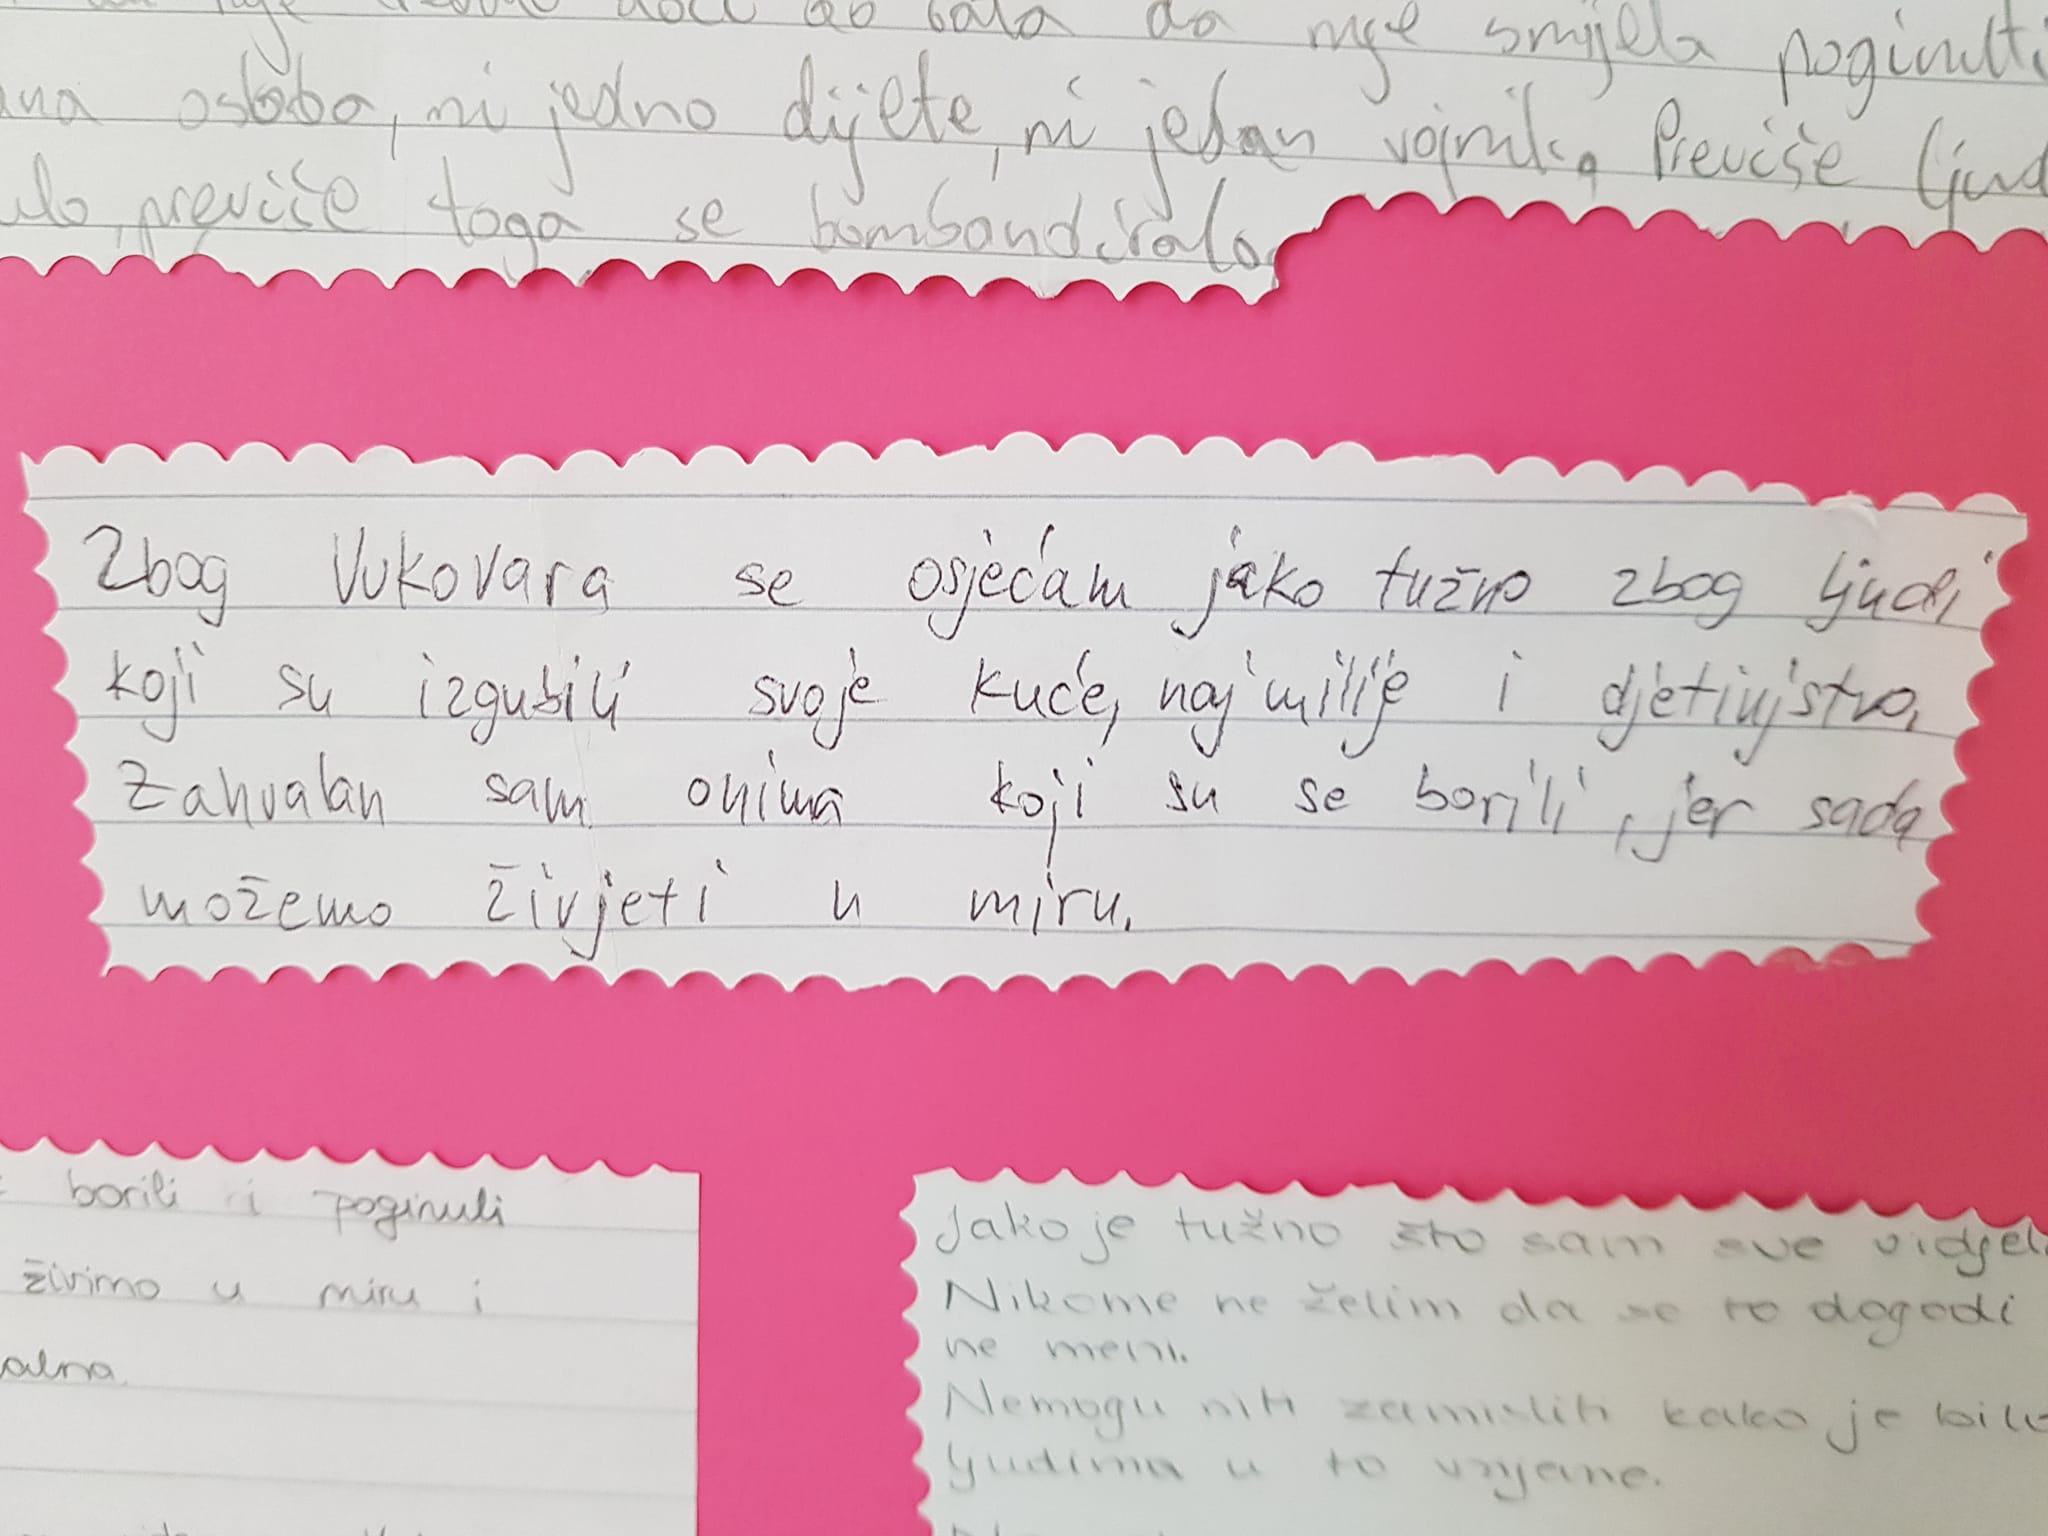 da nije smjela poginuti
osoba, ni jedno dijete, ni jedan vojnik. Previše
previše toga se bombandiralo
Zbog Vukovara se osjećam jako tužno zbog ljudi
koji su izgubili svoje kuće, najmilije i djetinjstvo.
Zahvalan sam onima koji su se borili, jer sada
možemo živjeti u miru.
borili i poginuli
živimo u miru i
Jako je tužno što sam sve
Nikome ne želim da se to dogodi
ne meni.
Nemogu niti zamisliti kako je bilo
ljudima u to vrijeme.